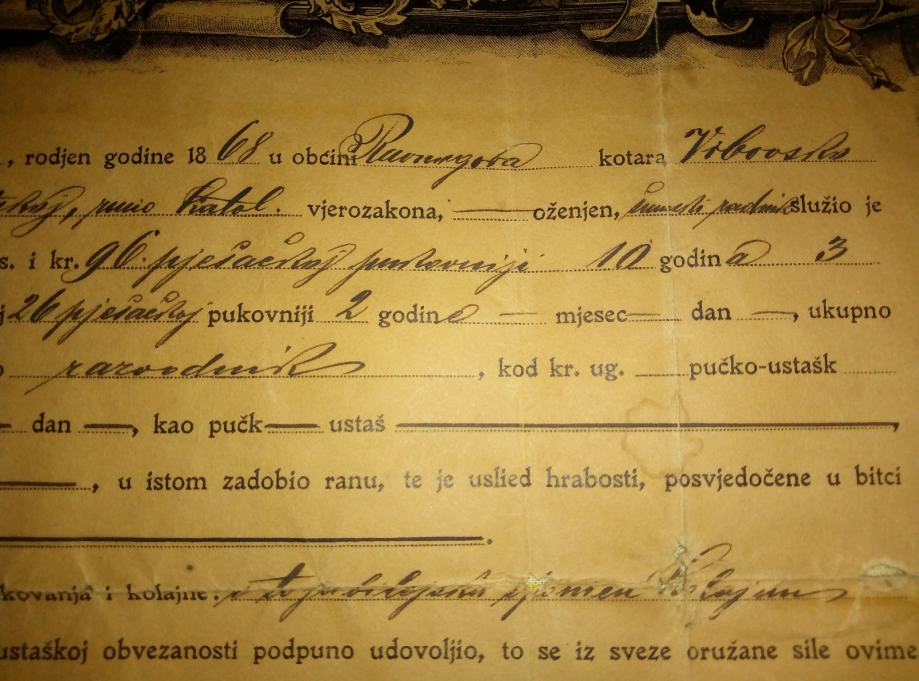 , rodjen godine 1868 u obćini Ravnagora kotara Vrbovsko
vjerozakona, oženjen, šumski radnik služio je
s. i kr. 96. pješačkoj pukovniji 10 godina 3
j 26 pješačkoj pukovniji 2 godine — mjesec — dan —, ukupno
razvodnik, kod kr. ug. pučko-ustašk
— dan —, kao pučk— ustaš —,
—, u istom zadobio ranu, te je uslied hrabosti, posvjedočene u bitci
—.
kovanja i kolajne: jubilejsku spomen kolajnu
ustaškoj obvezanosti podpuno udovoljio, to se iz sveze oružane sile ovime